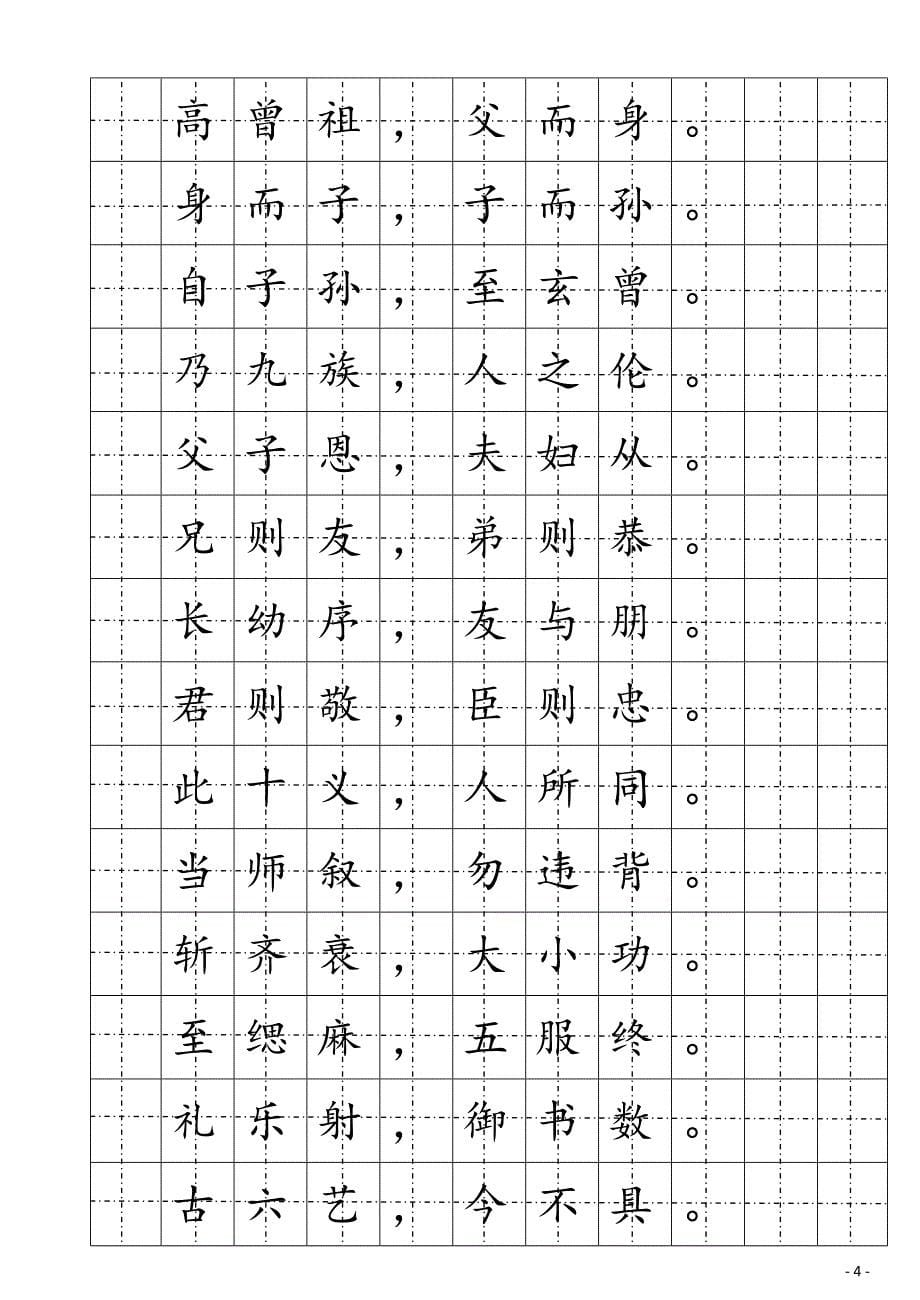 高曾祖，父而身。
身而子，子而孙。
自子孙，至玄曾。
乃九族，人之伦。
父子恩，夫妇从。
兄则友，弟则恭。
长幼序，友与朋。
君则敬，臣则忠。
此十义，人所同。
当师叙，勿违背。
斩齐衰，大小功。
至缌麻，五服终。
礼乐射，御书数。
古六艺，今不具。
- 4 -